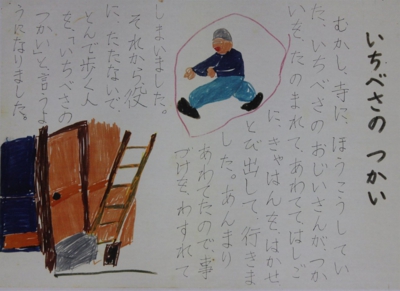 いちべさの つかい
むかし、寺に、ほうこうしてい
た、いちべさのおじいさんが、つか
いを、たのまれて、あわててはしご
に、きゃはんをはかせ
とび出して、行きま
した。あんまり
あわてたので、事
づけを、わすれて
しまいました。
それから、役
に、たたないで
とんで歩く人
を、「いちべさの
つかい」と言うよ
うになりました。